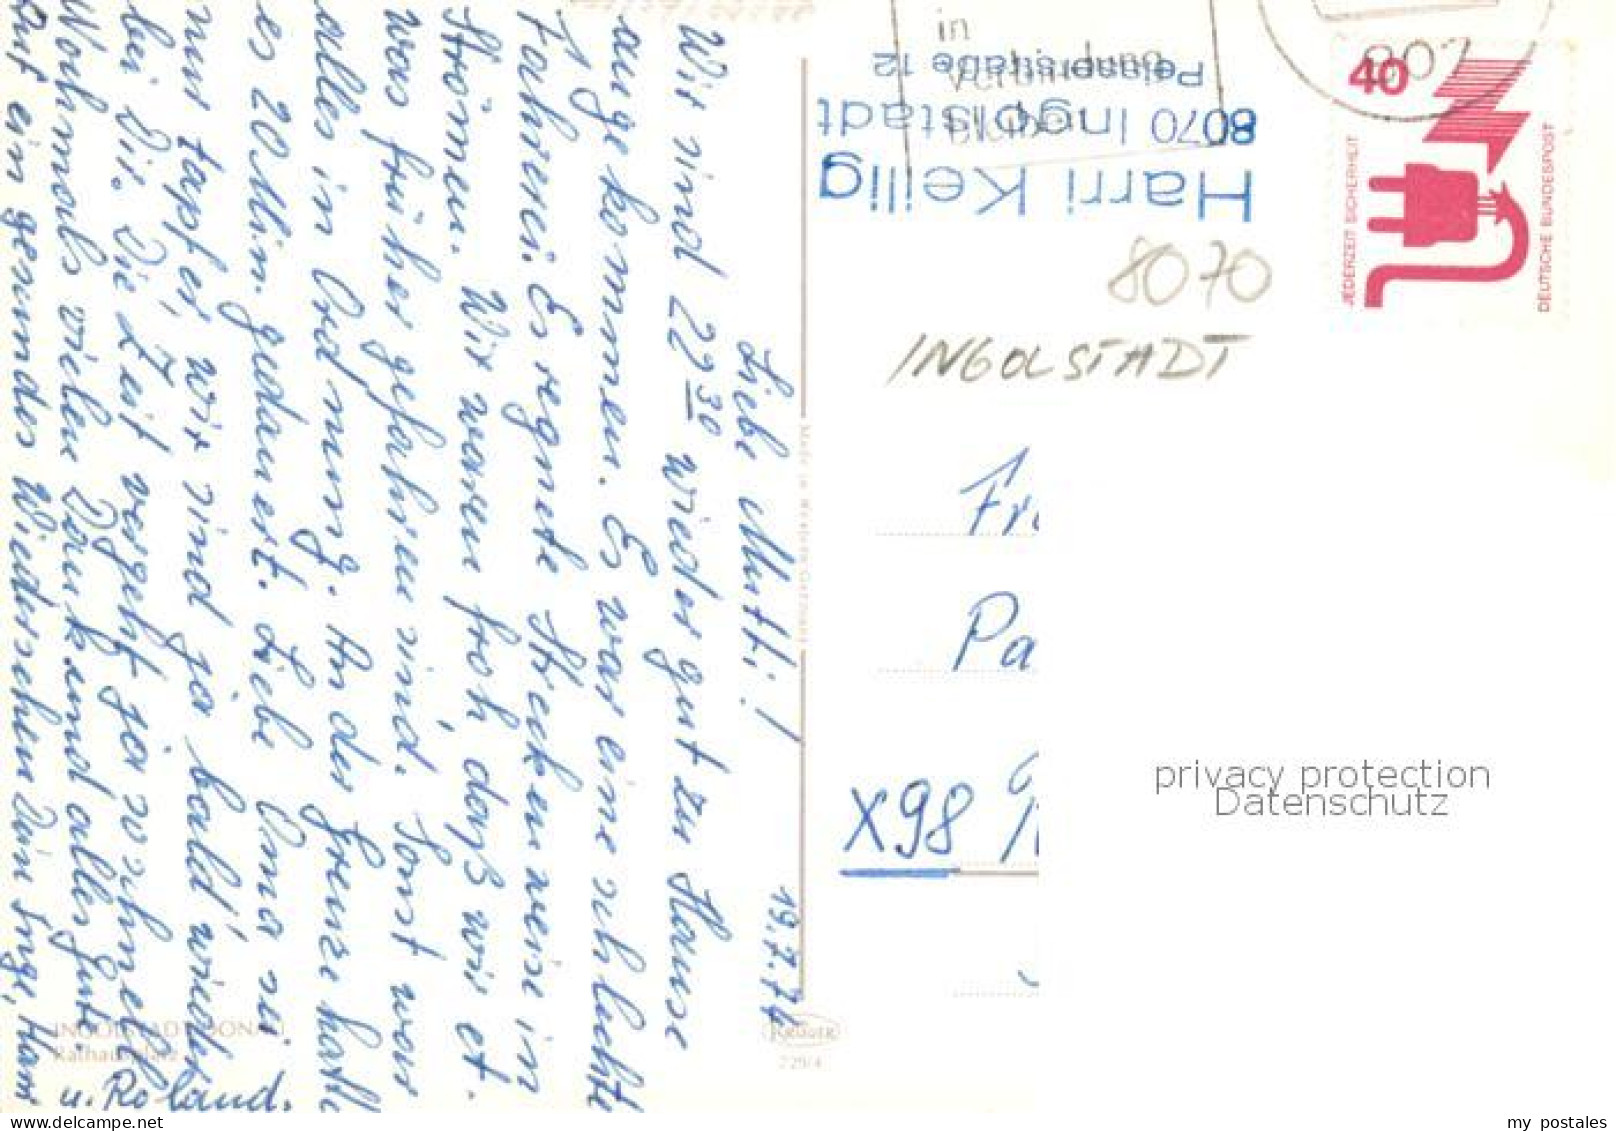 Liebe Mutti! 19.7.74
Wir sind 22³⁰ wieder gut zu Hause
angekommen. Es war eine schlechte
Fahrerei. Es regnete streckenweise in
Strömen. Wir waren froh, daß wir et.
was früher gefahren sind. Sonst war
alles in Ordnung. An der Grenze hat
es 20 Min. gedauert. Liebe Oma sei
nun tapfer wir sind ja bald wieder
bei Dir. Die Zeit vergeht ja so schnell
Nochmals vielen Dank und alles Gute
auf ein gesundes Wiedersehen Dein Inge, Harri
u. Roland.
INGOLSTADT DONAU
Rathausplatz
KRÜGER
Harri Keilig
8070 Ingolstadt
Peisserstraße 12
in
807
40
JEDERZEIT SICHERHEIT
DEUTSCHE BUNDESPOST
8070
INGOLSTADT
Fr
Pa
X98
privacy protection
Datenschutz
my postales